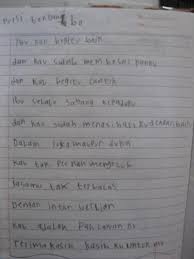 Puisi tentang Ibu
Ibu kau begitu baik
dan kau sudah membesar
dan kau begitu cantik
Ibu selalu sayang kepadaku
dan kau sudah menasihatiku dengan baik
Dalam suka maupun duka
kau tak pernah mengeluh
Jasamu tak terbalas
Dengan intan
kau adalah Pahlawan ku
Terima kasih kasih ku untuk mu